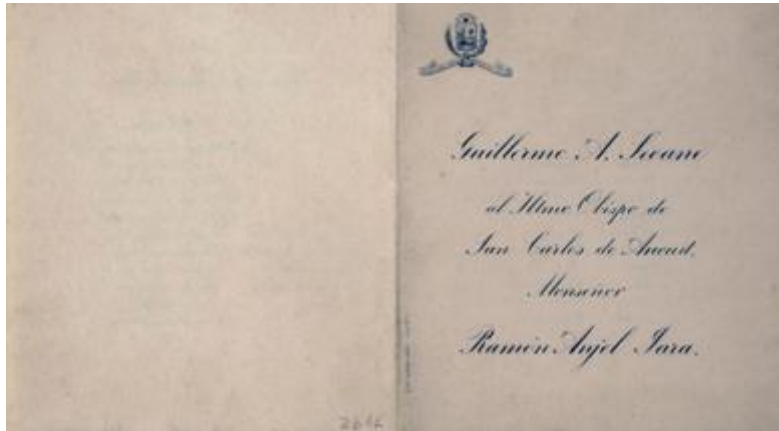 Guillermo A. Seoane
al Iltmo Obispo de
San Carlos de Ancud.
Monseñor
Ramón Anjel Jara.